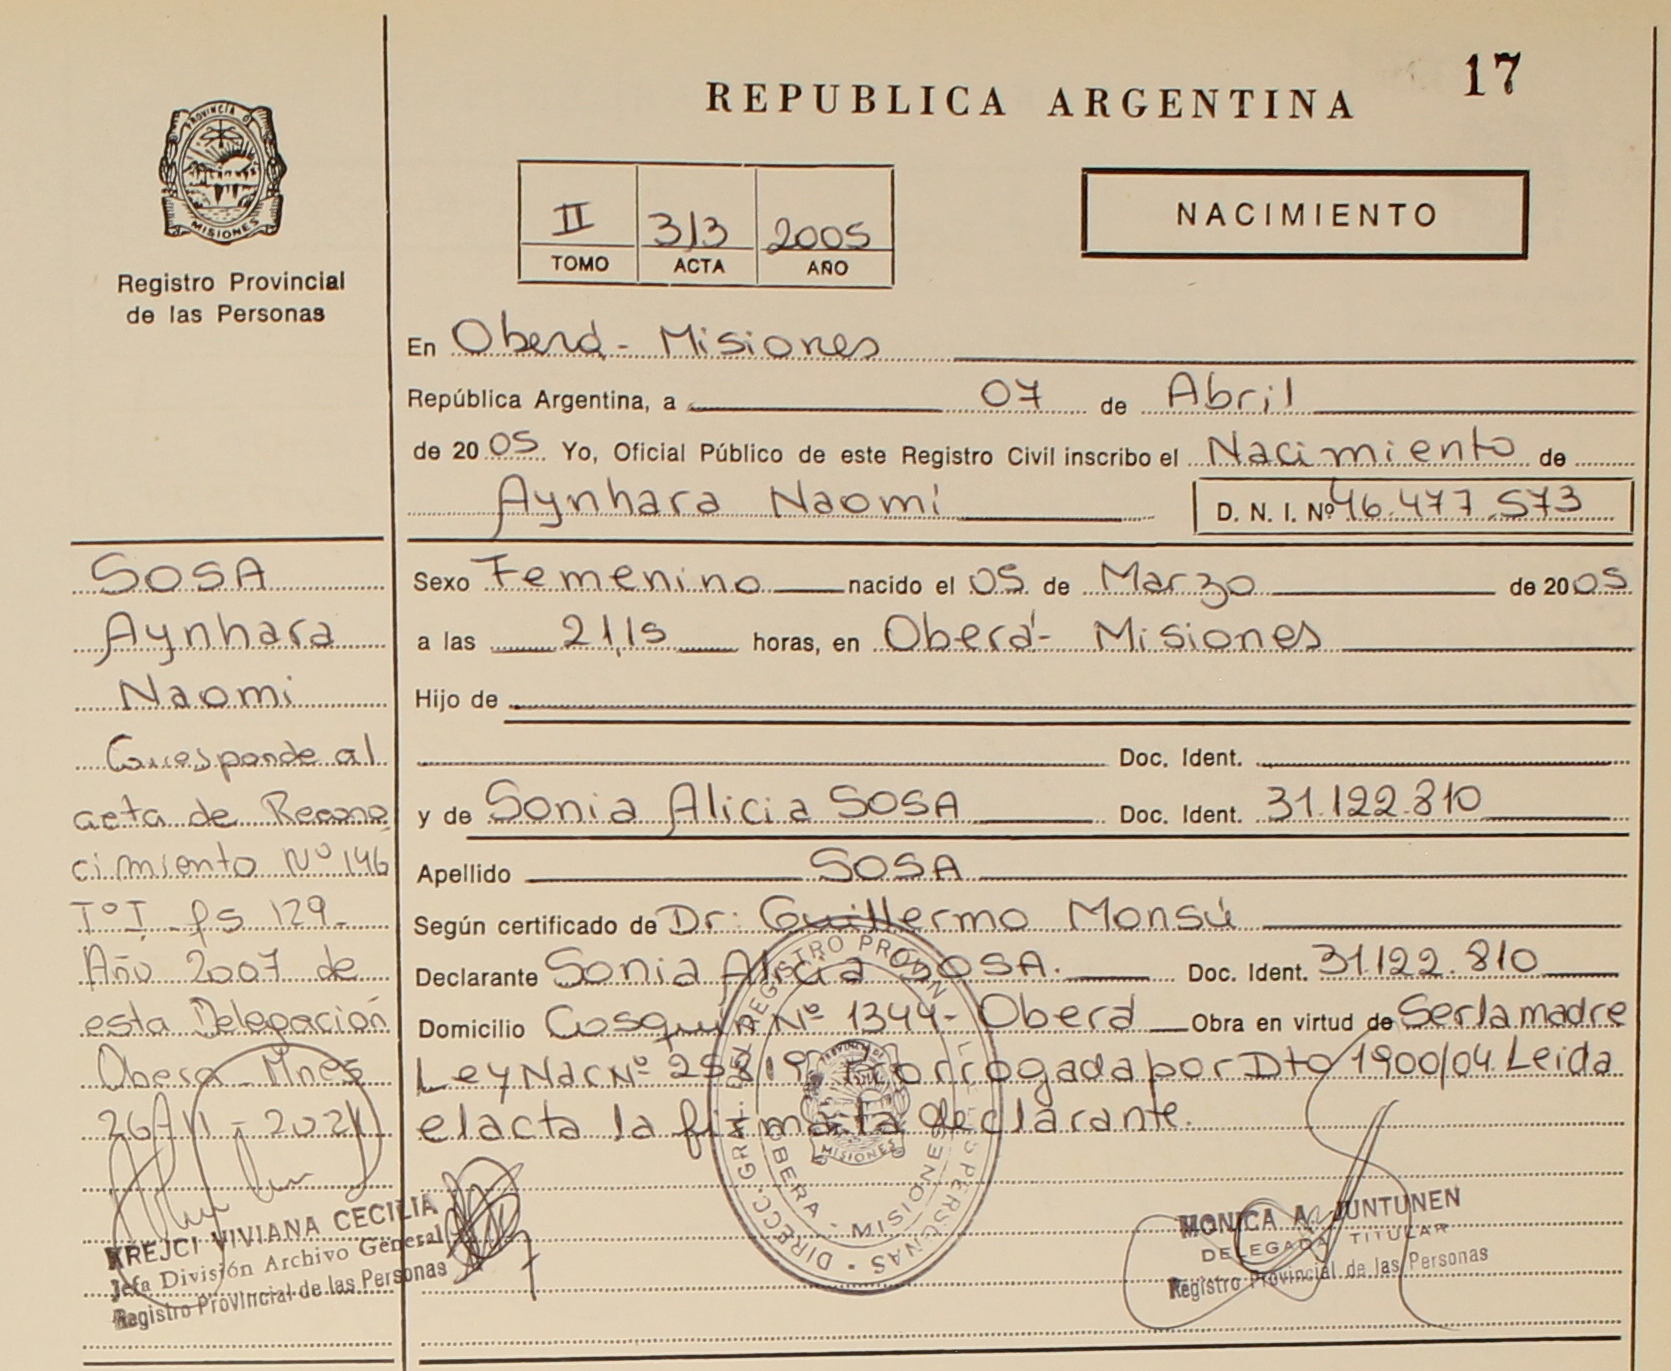 17
REPUBLICA ARGENTINA
PROVINCIA DE
MISIONES
Registro Provincial
de las Personas
II 313 2005
TOMO ACTA AÑO
NACIMIENTO
En Oberá - Misiones
República Argentina, a 07 de Abril
de 2005 Yo, Oficial Público de este Registro Civil inscribo el Nacimiento de
Aynhara Naomi D. N. I. Nº 46.477.573
Sexo Femenino nacido el 05 de Marzo de 2005
a las 21,15 horas, en Oberá - Misiones
Hijo de
Doc. Ident.
y de Sonia Alicia SOSA Doc. Ident. 31.122.810
Apellido SOSA
Según certificado de Dr: Guillermo Monsú
Declarante Sonia Alicia SOSA. Doc. Ident. 31.122.810
Domicilio Cosquín Nº 1344 - Oberá Obra en virtud de Ser la madre
Ley Nac Nº 25819 Prorrogada por Dto 1900/04 Leida
el acta la firma la declarante.
SOSA
Aynhara
Naomi
Corresponde al
acta de Recono
cimiento Nº 146
Tº I fs 129-
Año 2007 de
esta Delegación
Oberá Mnes
26 - 2021
KREJCI VIVIANA CECILIA
Jefa División Archivo General
Registro Provincial de las Personas
DIRECC. GRAL. DEL REGISTRO PROVIN. DE LAS PERSONAS
OBERA - MISIONES
PROVINCIA DE
MISIONES
MONICA A. JUNTUNEN
DELEGADA TITULAR
Registro Provincial de las Personas